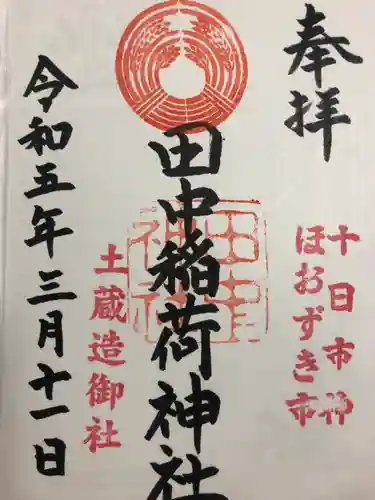 奉拝
十日市神
ほおずき市
田中稲荷神社
田中
神社
土蔵造御社
令和五年三月十一日